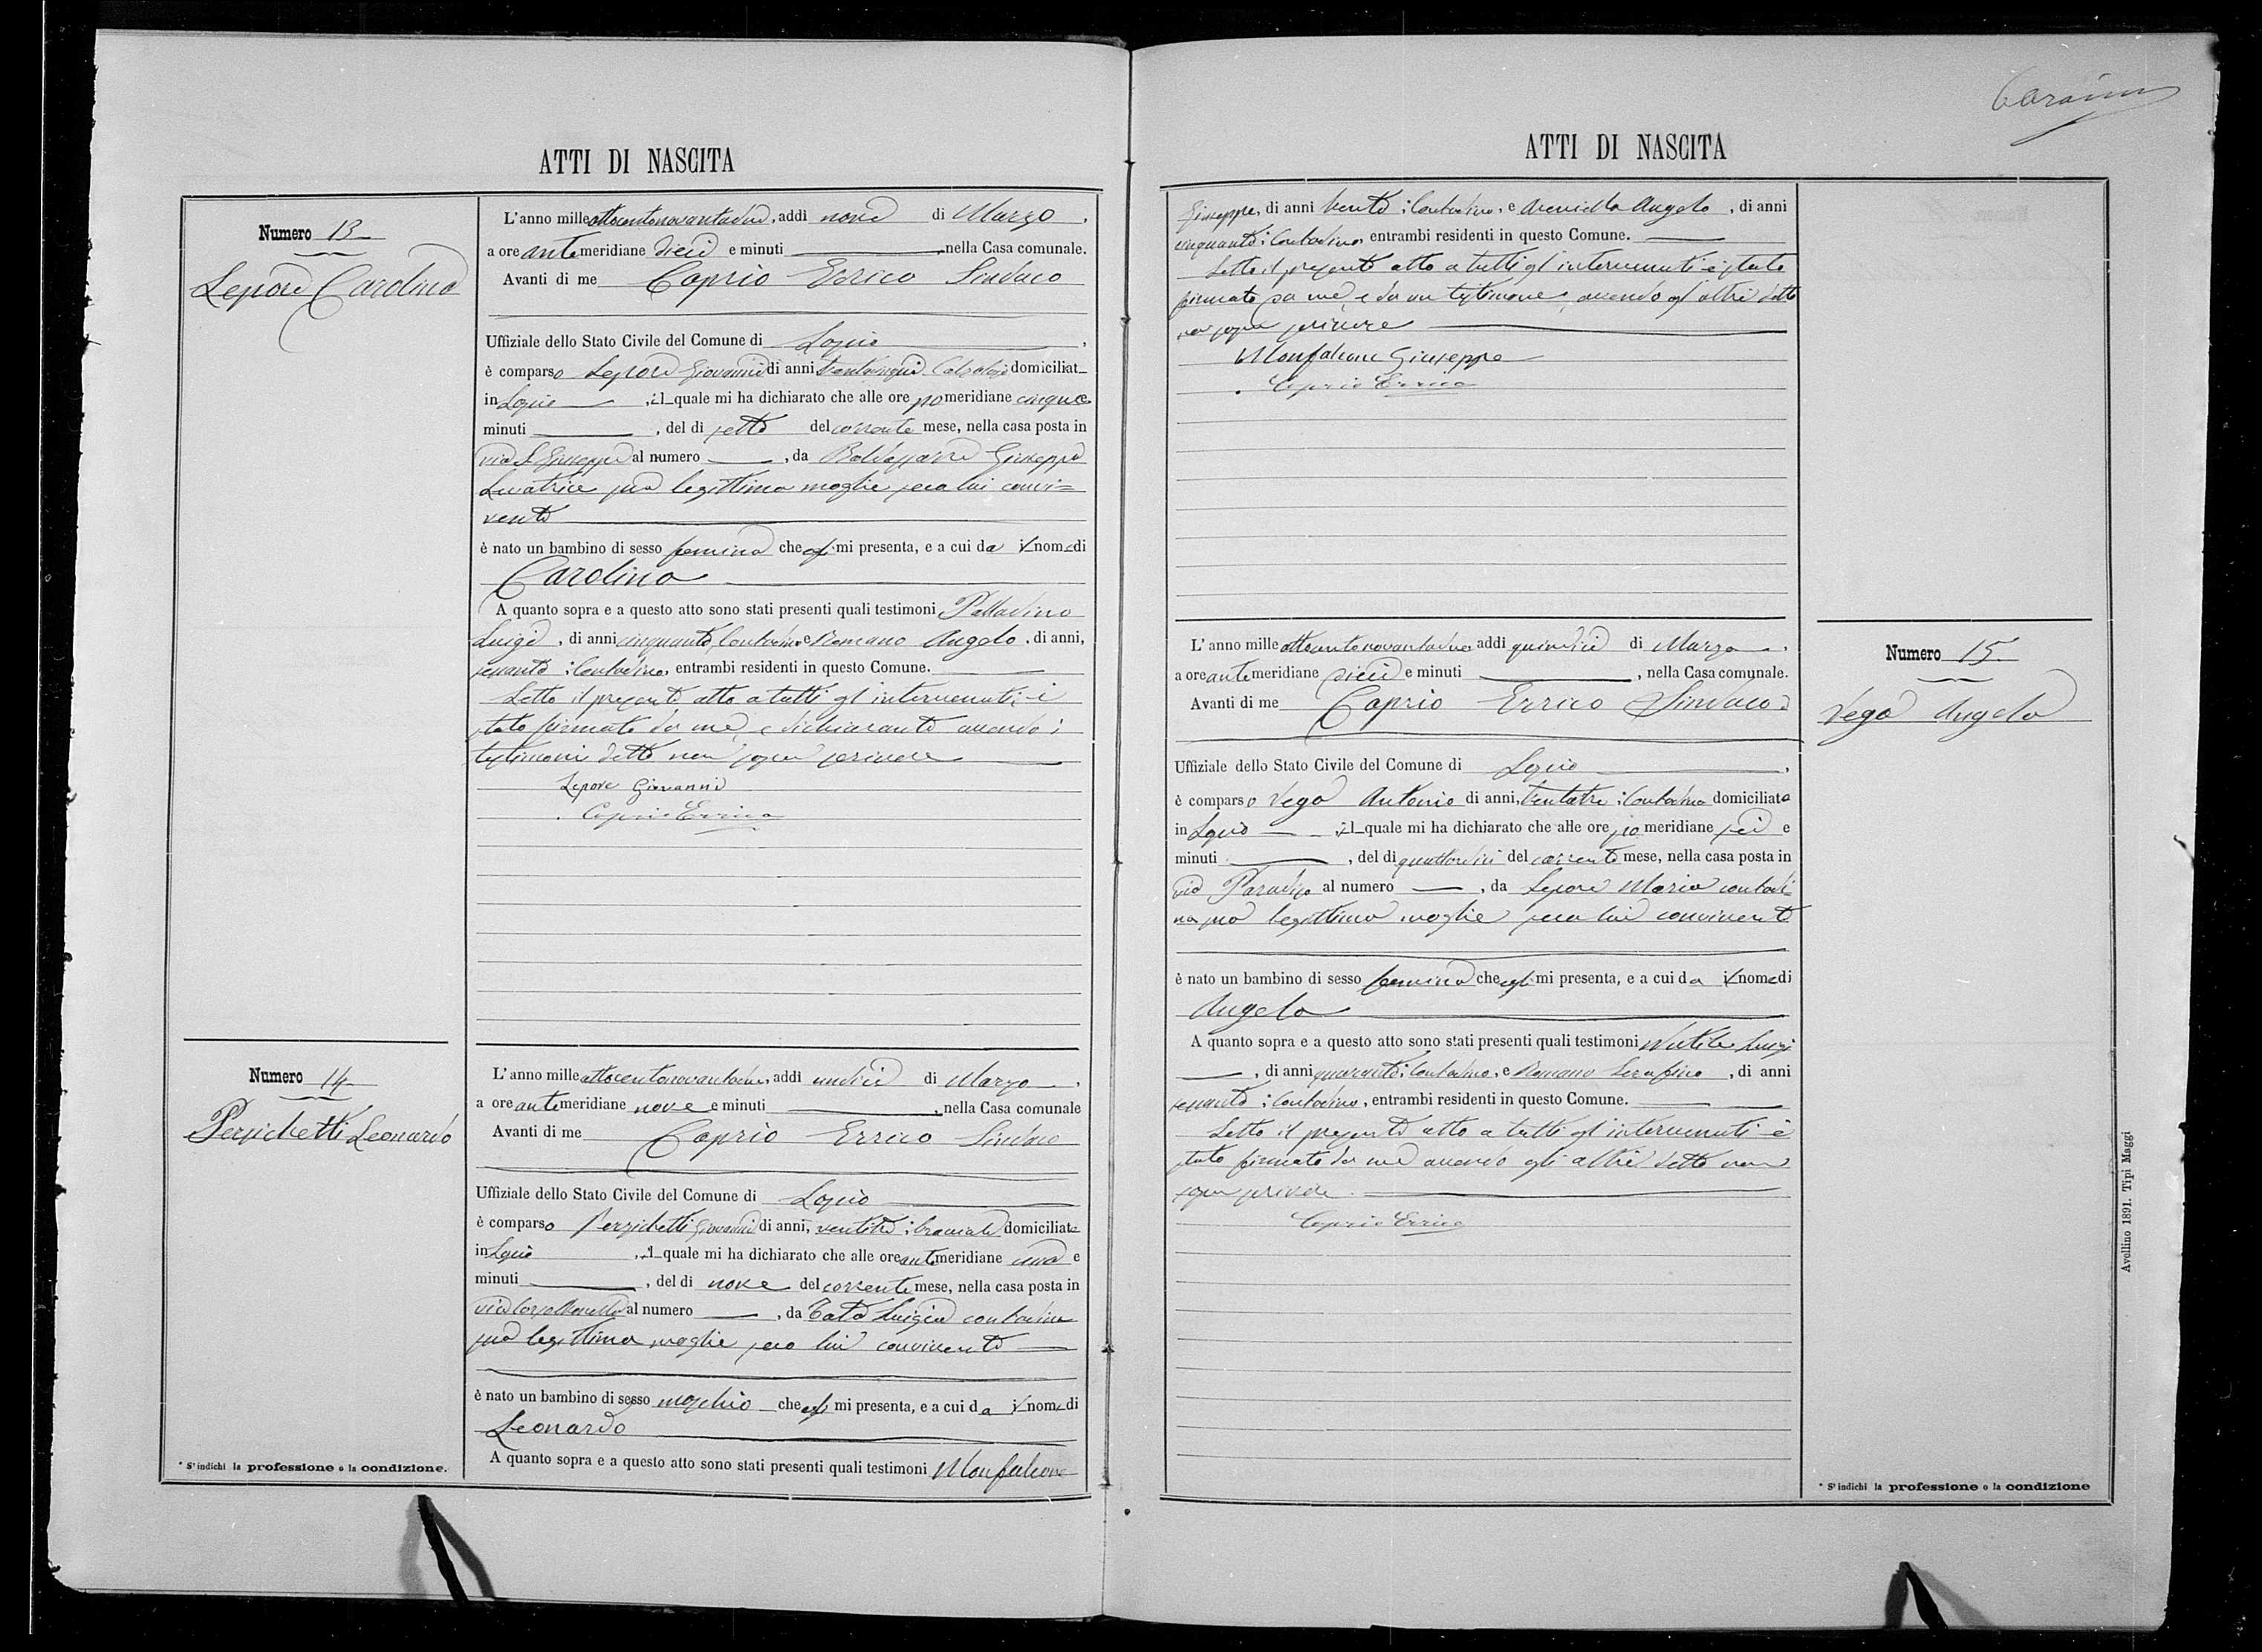 ATTI DI NASCITA
Numero 13
Lepore Carolina
L'anno mille ottocentonovantadue, addi nove di Marzo,
a ore antemeridiane dieci e minuti, nella Casa comunale.
Avanti di me Caprio Errico Sindaco
Uffiziale dello Stato Civile del Comune di
è comparso Lepore Giovanni di anni trentacinque Calzolajo domiciliat
in, il quale mi ha dichiarato che alle ore pomeridiane cinque
minuti, del di sette del corrente mese, nella casa posta in
via S. Giuseppe al numero, da Baldassarre Giuseppa
Levatrice sua legittima moglie seco lui convi=
vente
è nato un bambino di sesso femineo che egli mi presenta, e a cui da il nome di
Carolina
A quanto sopra e a questo atto sono stati presenti quali testimoni Palladino
Luigi, di anni cinquanta, Contadino e Romano Angelo, di anni,
sessanta; Contadino, entrambi residenti in questo Comune.
Letto il presente atto a tutti gl'intervenuti è
stato firmato da me, e dichiarante avendo i
testimoni detto non saper scrivere
Lepore Giovanni
Caprio Errico
Numero 14
Persichetti Leonardo
L'anno mille ottocentonovantadue, addi undici di Marzo,
a ore antemeridiane nove e minuti, nella Casa comunale
Avanti di me Caprio Errico Sindaco
Uffiziale dello Stato Civile del Comune di
è comparso Persichetti Giovanni di anni, ventitre; domiciliato
in, il quale mi ha dichiarato che alle ore antemeridiane una e
minuti, del di nove del corrente mese, nella casa posta in
via al numero, da Luigia contadina
sua legittima moglie seco lui convivente
è nato un bambino di sesso maschio che egli mi presenta, e a cui da il nome di
Leonardo
A quanto sopra e a questo atto sono stati presenti quali testimoni Monfalcone
* S'indichi la professione o la condizione.
ATTI DI NASCITA
Giuseppe, di anni venti; Contadino, e Angelo, di anni
cinquanta; Contadino, entrambi residenti in questo Comune.
Letto il presente atto a tutti gl'intervenuti è stato
firmato da me, e da un testimone, avendo gl'altri detto
non saper scrivere
Monfalcone Giuseppe
Caprio Errico
Numero 15
Vega Angela
L'anno mille ottocentonovantadue addi quindici di Marzo,
a ore antemeridiane dieci e minuti, nella Casa comunale.
Avanti di me Caprio Errico Sindaco
Uffiziale dello Stato Civile del Comune di
è comparso Vega Antonio di anni, trentatre; Contadino domiciliato
in, il quale mi ha dichiarato che alle ore pomeridiane sei e
minuti, del di quattordici del corrente mese, nella casa posta in
via Paradiso al numero, da Lepore Maria contadi=
na sua legittima moglie seco lui convivente
è nato un bambino di sesso femineo che egli mi presenta, e a cui da il nome di
Angela
A quanto sopra e a questo atto sono stati presenti quali testimoni Luigi
, di anni quaranta; Contadino, e Romano Serafino, di anni
sessanta; Contadino, entrambi residenti in questo Comune.
Letto il presente atto a tutti gl'intervenuti è
stato firmato da me avendo gli altri detto non
saper scrivere.
Caprio Errico
* S'indichi la professione o la condizione
Avellino 1891. Tipi Maggi